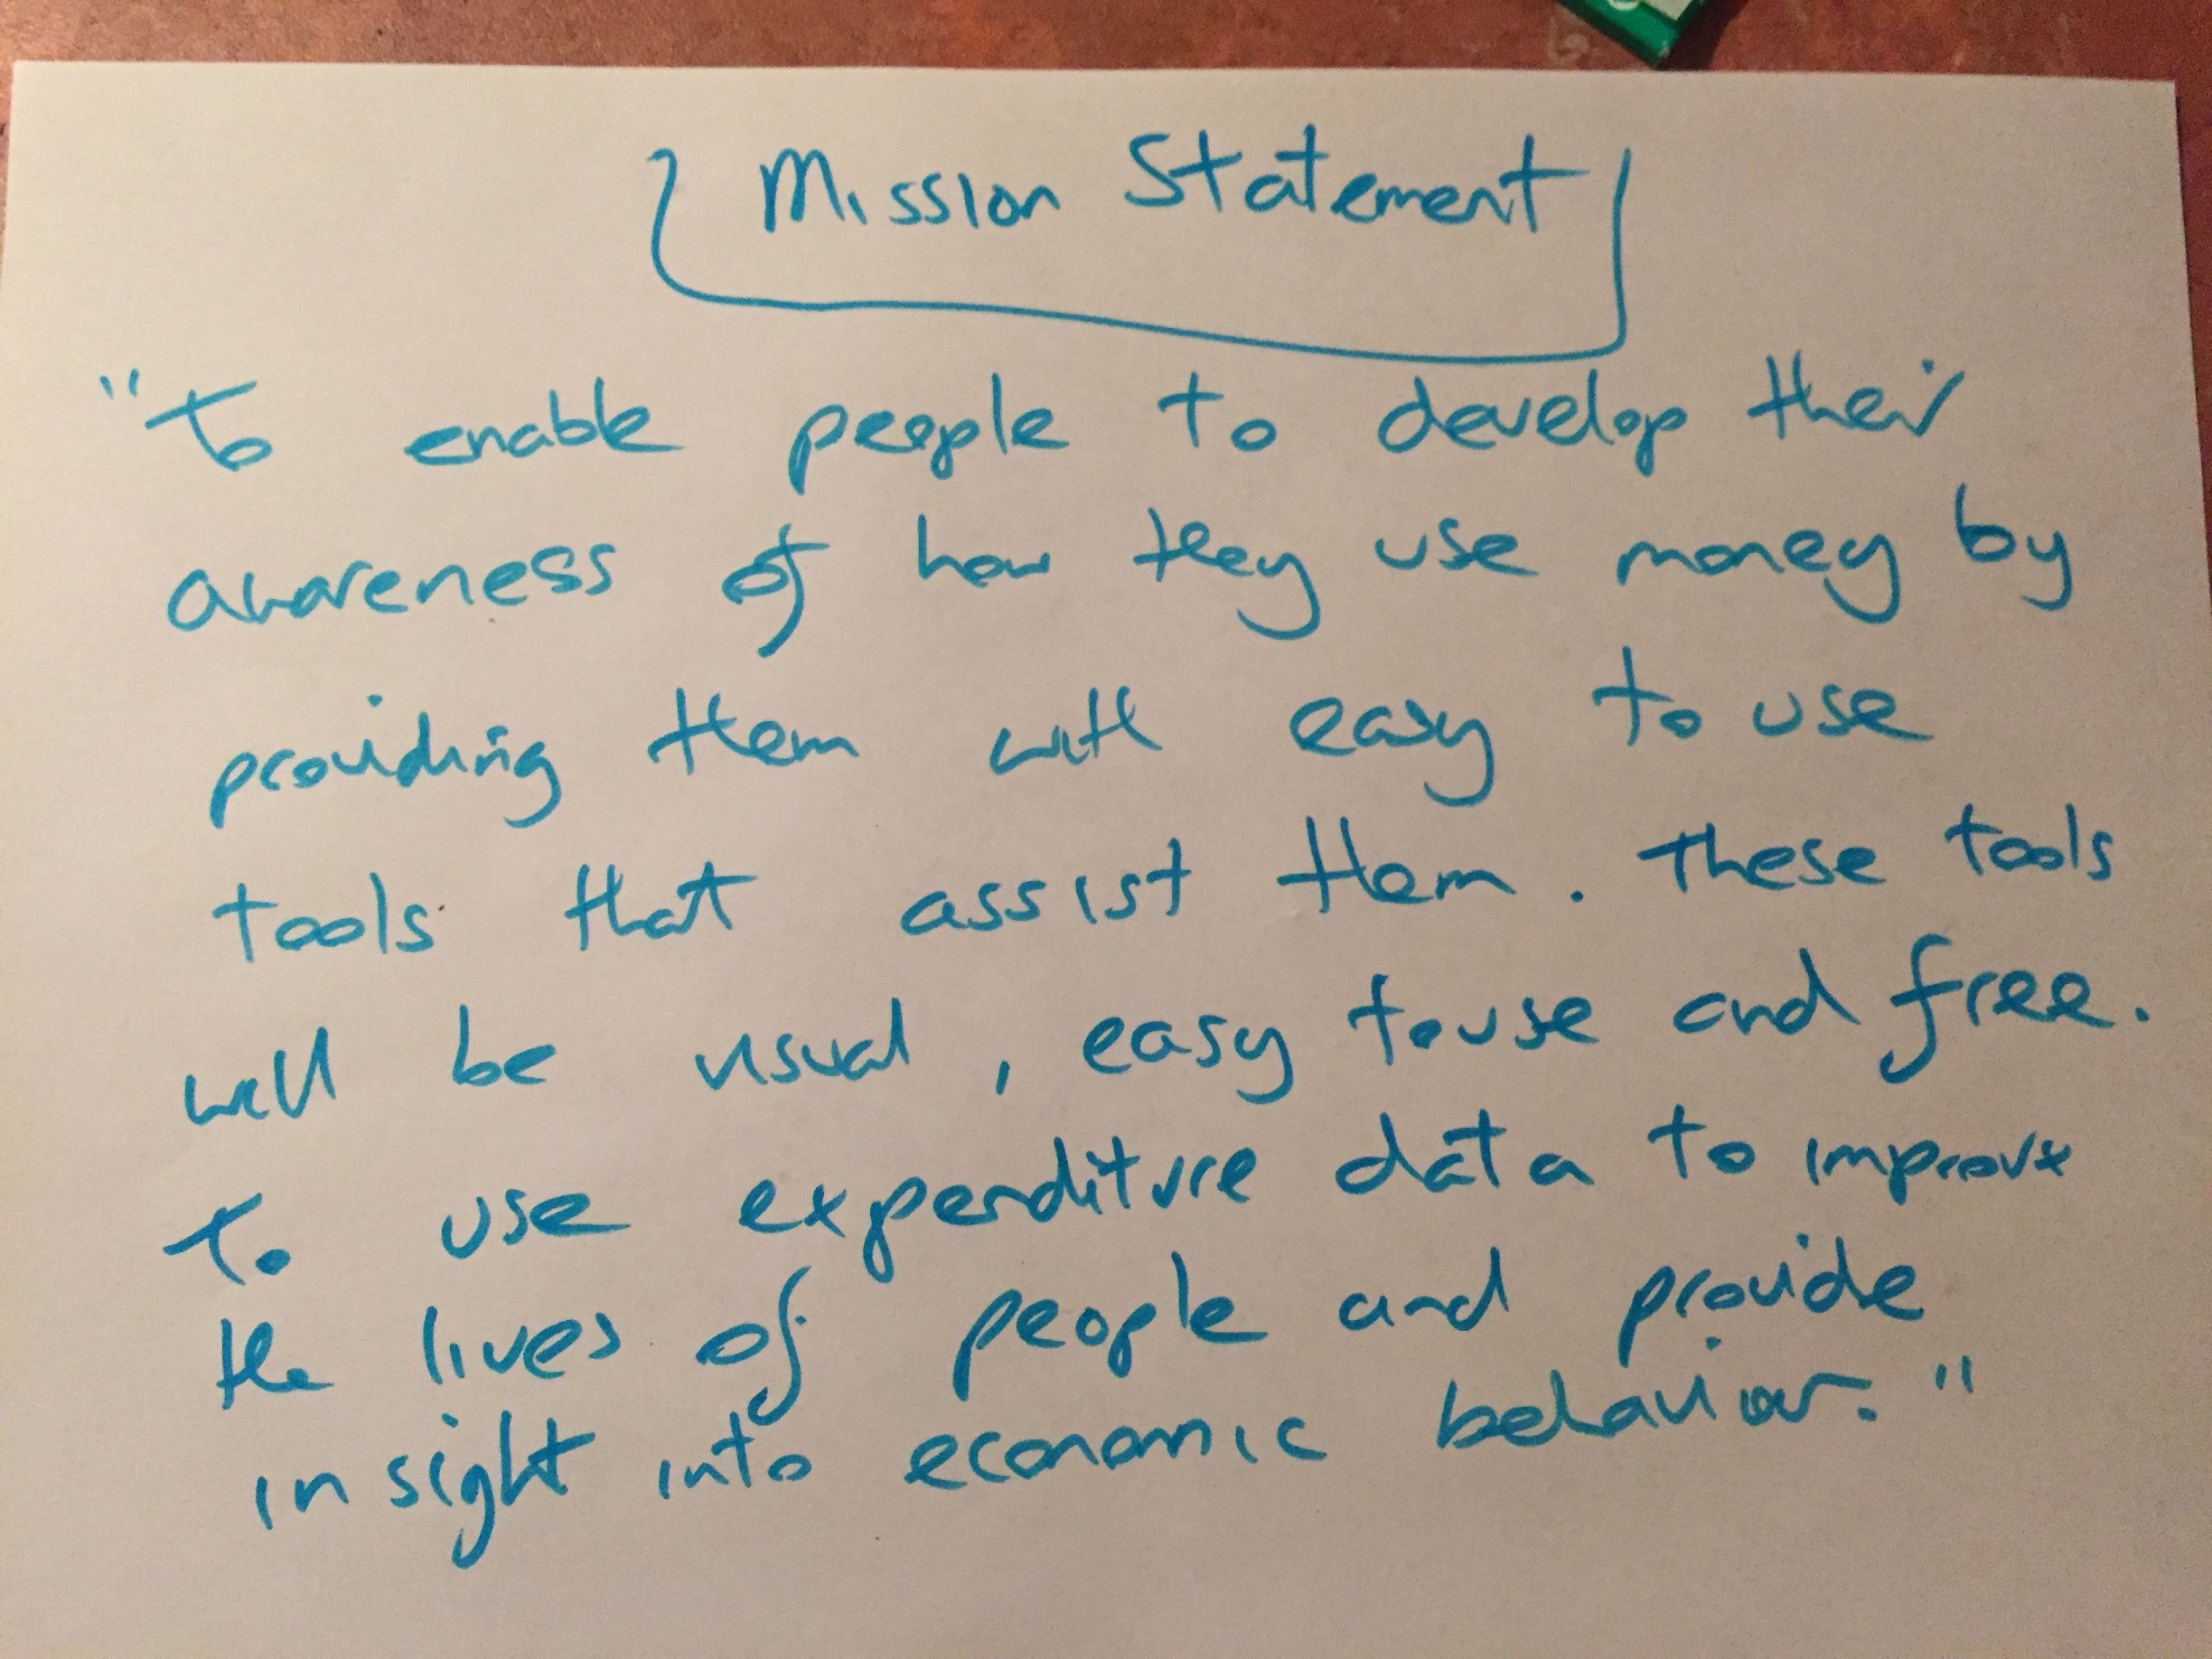 Mission Statement
"To enable people to develop their
awareness of how they use money by
providing them with easy to use
tools that assist them. These tools
will be visual, easy to use and free.
To use expenditure data to improve
the lives of people and provide
insight into economic behaviour."